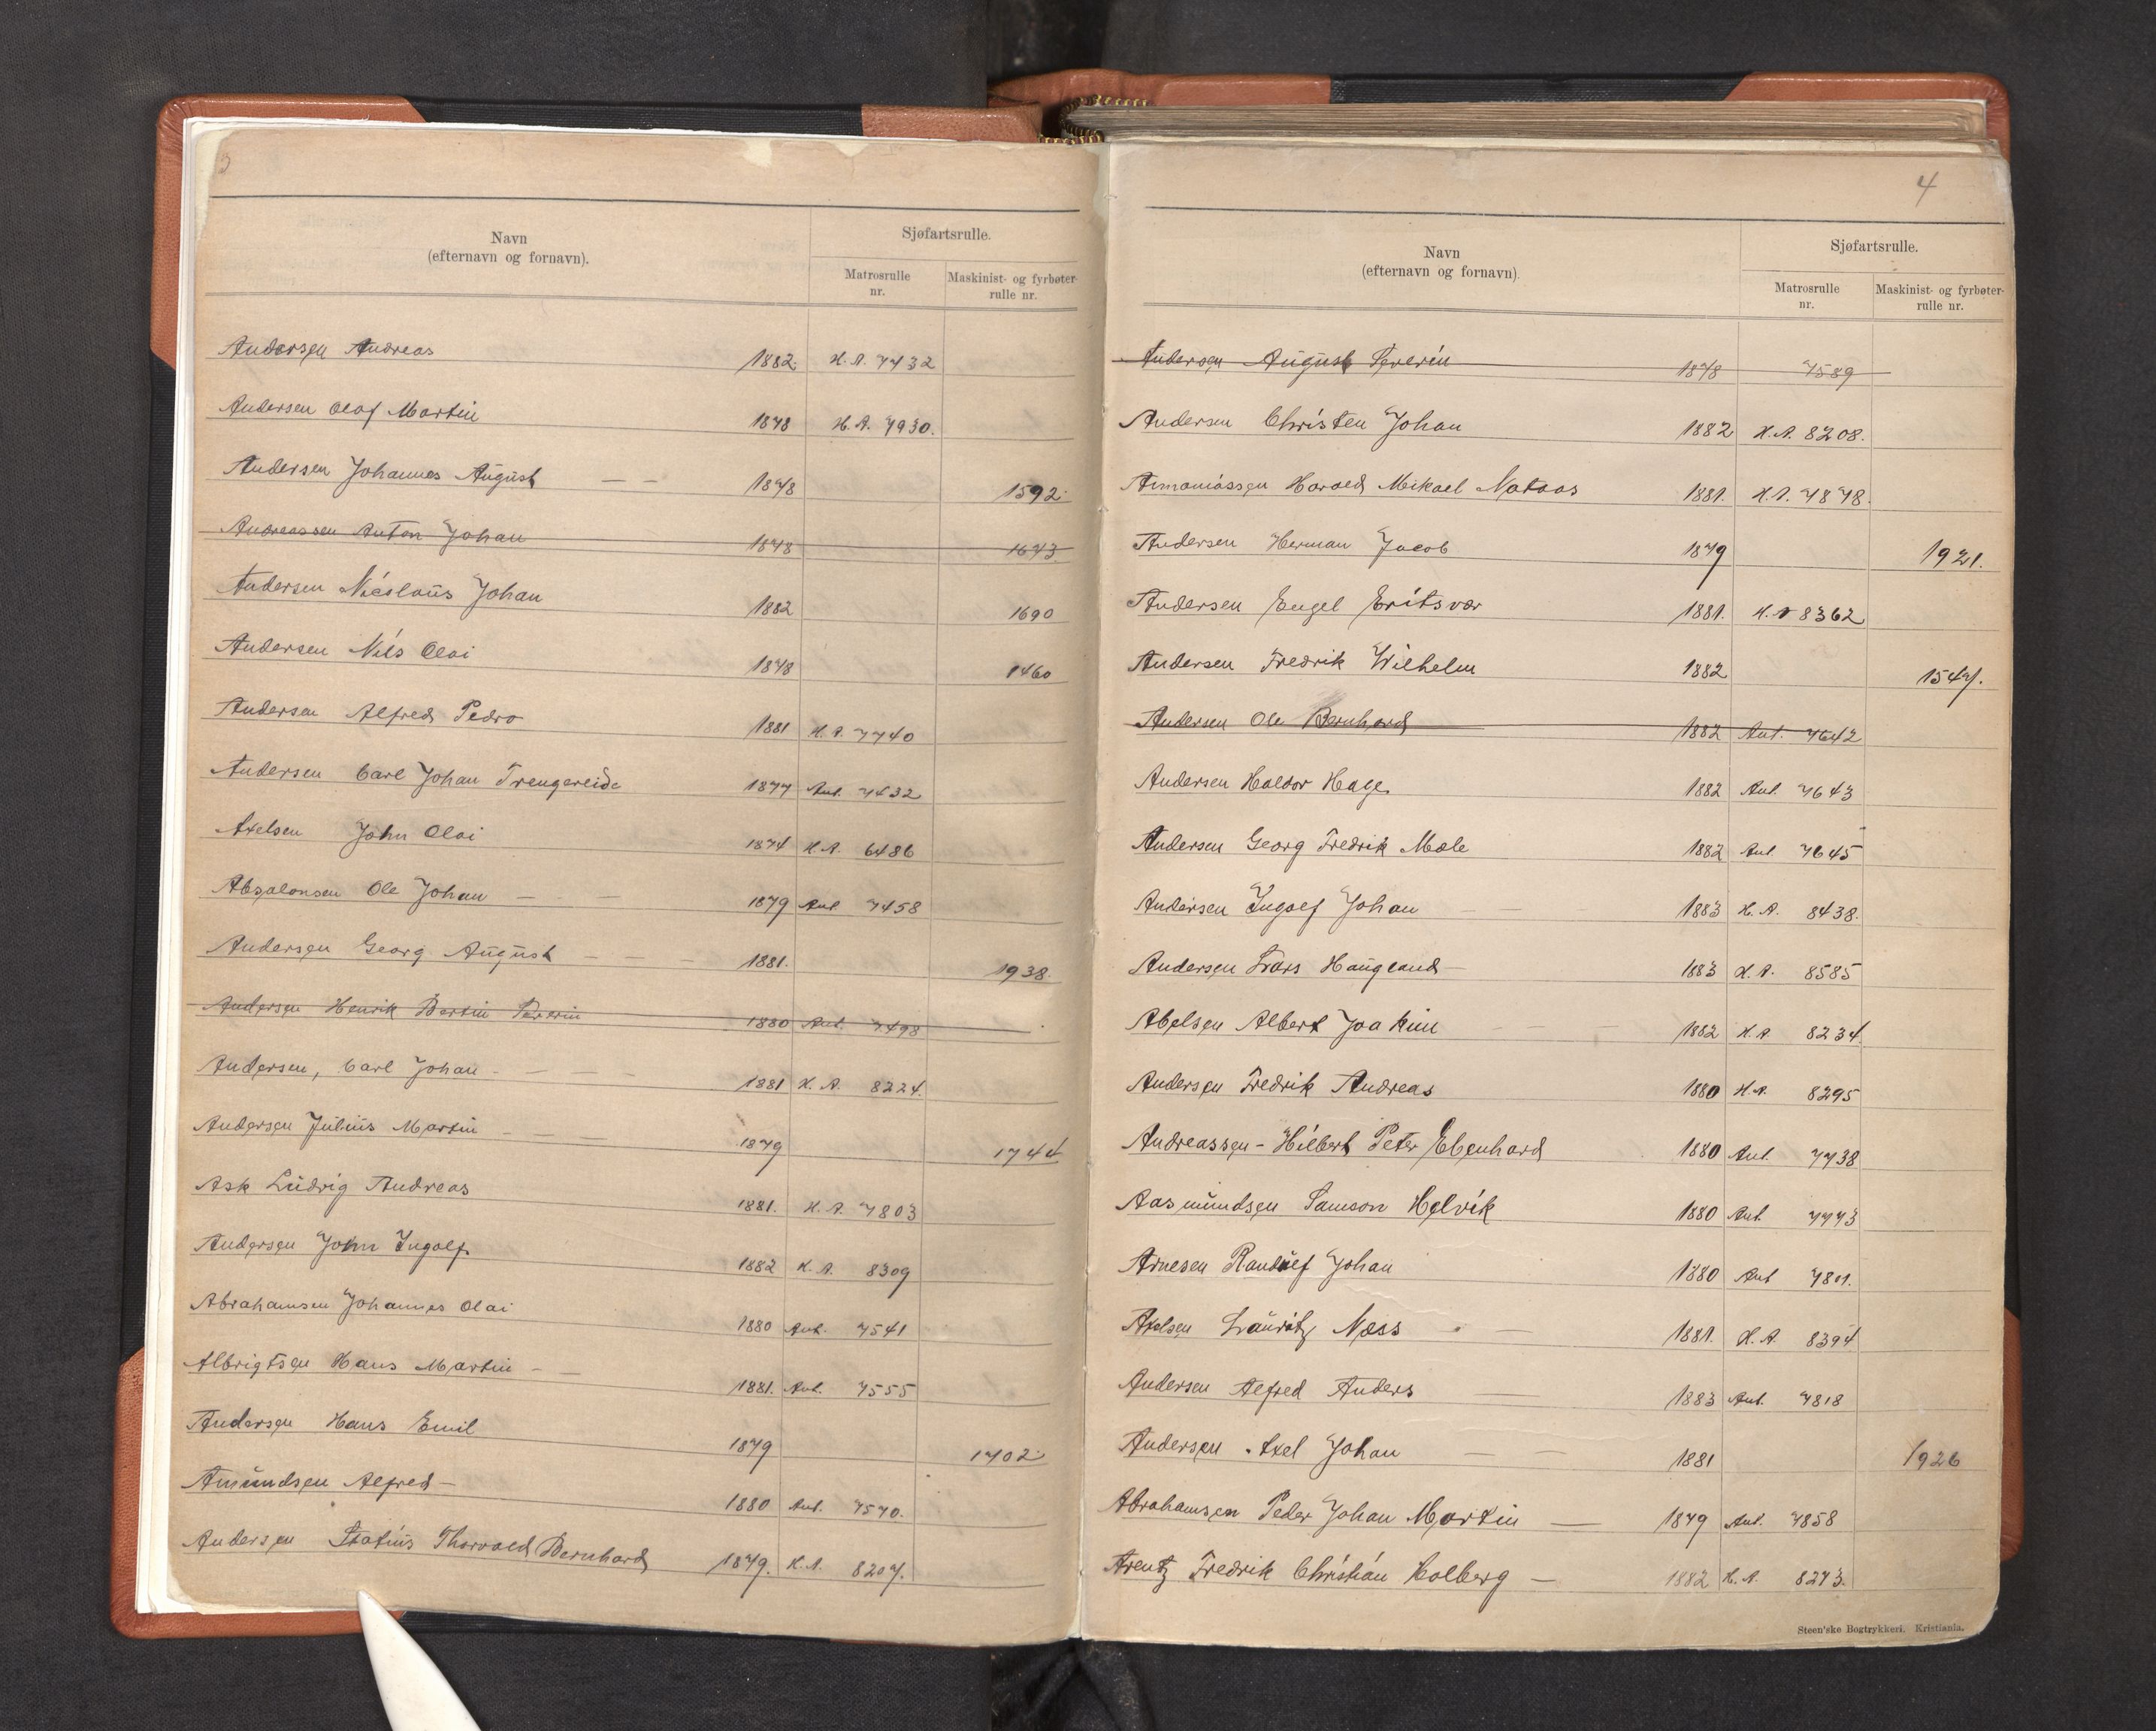 3
Navn
(efternavn og fornavn).
Sjøfartsrulle.
Matrosrulle nr.
Maskinist- og fyrbøter-rulle nr.
Andersen Andreas 1882. H.A. 7432
Andersen Olaf Martin 1878 H.A. 7930.
Andersen Johannes August — — 1878 1592.
Andreassen Anton Johan 1878 1673
Andersen Nicolaus Johan 1882 1690
Andersen Nils Olai 1878 1460
Andersen Alfred Pedro 1881 H.A. 7740
Andersen Carl Johan Trengereide 1877 Ant. 7432
Axelsen John Olai 1874 H.A. 6486
Absalonsen Ole Johan — - — 1879 Ant. 7458
Andersen Georg August — — — 1881. 1938.
Andersen Henrik Bertin Severin 1880 Ant. 7498
Andersen, Carl Johan - — — — 1881 H.A. 8224.
Andersen Julius Martin - — — — 1879 1744
Ask Ludvig Andreas 1881. H.A. 7803
Andersen John Ingolf 1882 H.A. 8309
Abrahamsen Johannes Olai 1880 Ant. 7541
Albrigtsen Hans Martin — — 1881. Ant. 7555
Andersen Hans Emil 1879 1702.
Amundsen Alfred — 1880 Ant. 7570.
Andersen Thorvald Bernhard 1879. H.A. 8207.
4
Navn
(efternavn og fornavn).
Sjøfartsrulle.
Matrosrulle nr.
Maskinist- og fyrbøter-rulle nr.
Andersen August Severin 1878 7589
Andersen Christen Johan 1882 H.A. 8208.
Harald Mikael 1881. H.A. 7878.
Andersen Herman Jacob 1879 1921.
Andersen Engel Eritsvær 1881. H.A 8362
Andersen Fredrik Wilhelm 1882 1547.
Andersen Ole Bernhard 1882 Ant. 7642
Andersen Haldor Hage 1882 Ant. 7643
Andersen Georg Fredrik Mæle 1882 Ant. 7645
Andersen Ingolf Johan — 1883 H.A. 8438.
Andersen Lars Haugland — 1883 H.A. 8585
Abelsen Albert Joakim 1882 H.A. 8234
Andersen Fredrik Andreas 1880 H.A. 8295
Andreassen - Hilbert Peter Ebenhard 1880 Ant. 7738
Aasmundsen Samson Helvik 1880 Ant. 7773
Arnesen Randulf Johan 1880 Ant 7801.
Axelsen Lauritz Næss — 1881. H.A. 8394
Andersen Alfred Anders 1883 Ant. 7818
Andersen Axel Johan — — 1881 1926
Abrahamsen Peder Johan Martin — 1879 Ant. 7858
Arentz Fredrik Christian Holberg — 1882 H.A. 8273.
Steen'ske Bogtrykkeri. Kristiania.